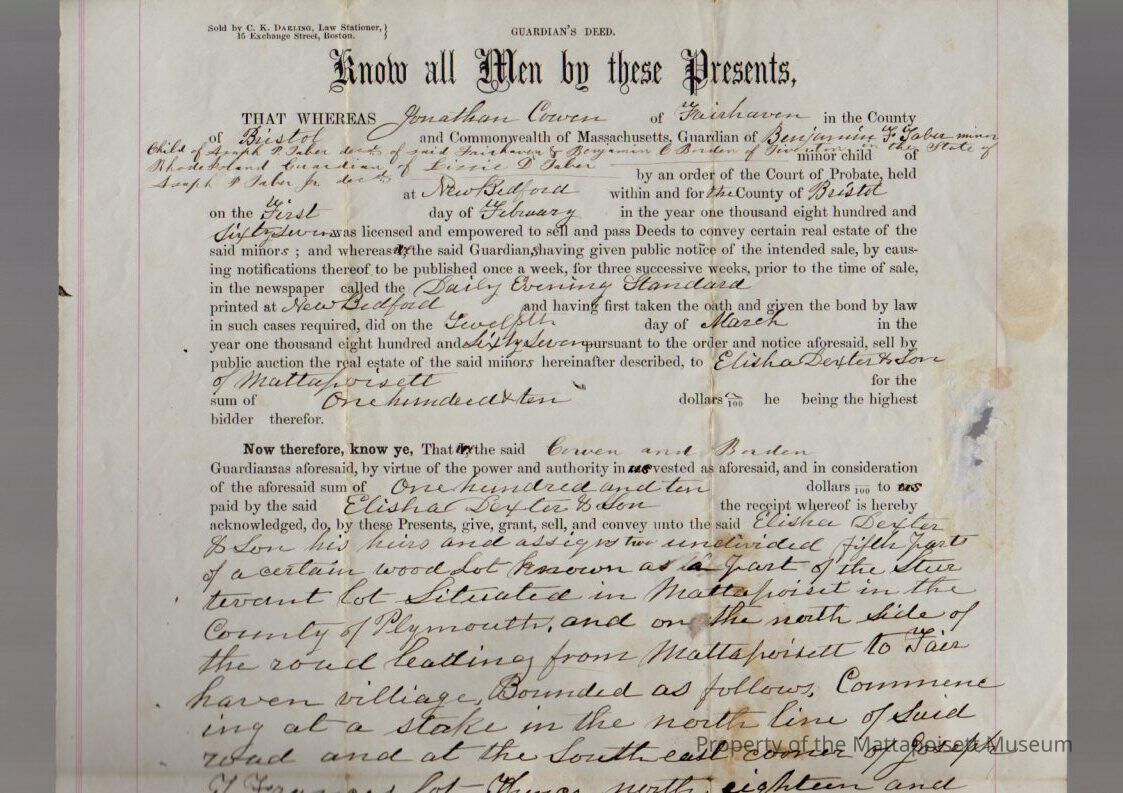 Sold by C. K. DARLING, Law Stationer, }
15 Exchange Street, Boston. }
GUARDIAN'S DEED.
Know all Men by these Presents,
THAT WHEREAS Jonathan Cowen of Fairhaven in the County
of Bristol and Commonwealth of Massachusetts, Guardian of Benjamin F Taber minor
Child of Joseph P. Taber decd. of said Fairhaven & Benjamin C Borden of Tiverton in the State of
minor child of
Rhode Island Guardian of Lissie D Taber
by an order of the Court of Probate, held
Joseph P Taber Jr decd
at New Bedford within and for the County of Bristol
on the First day of February in the year one thousand eight hundred and
Sixty Seven was licensed and empowered to sell and pass Deeds to convey certain real estate of the
said minors ; and whereas the said Guardians, having given public notice of the intended sale, by caus-
ing notifications thereof to be published once a week, for three successive weeks, prior to the time of sale,
in the newspaper called the Daily Evening Standard
printed at New Bedford and having first taken the oath and given the bond by law
in such cases required, did on the Twelfth day of March in the
year one thousand eight hundred and Sixty Seven pursuant to the order and notice aforesaid, sell by
public auction the real estate of the said minors hereinafter described, to Elisha Dexter & Son
of Mattapoisett for the
sum of One hundred & ten dollars /100 he being the highest
bidder therefor.
Now therefore, know ye, That the said Cowen and Borden
Guardians as aforesaid, by virtue of the power and authority in us vested as aforesaid, and in consideration
of the aforesaid sum of One hundred and ten dollars /100 to us
paid by the said Elisha Dexter & Son the receipt whereof is hereby
acknowledged, do, by these Presents, give, grant, sell, and convey unto the said Elisha Dexter
& Son his heirs and assigns two undivided fifth parts
of a certain wood Lot known as a part of the Stur
tevant lot Situated in Mattapoisit in the
County of Plymouth, and on the north side of
the road leading from Mattapoisett to Fair
haven villiage, Bounded as follows. Commenc
ing at a stake in the north line of Said
road and at the South east corner of Joseph
lot Thence north, eighteen and
Property of the Mattapoisett Museum